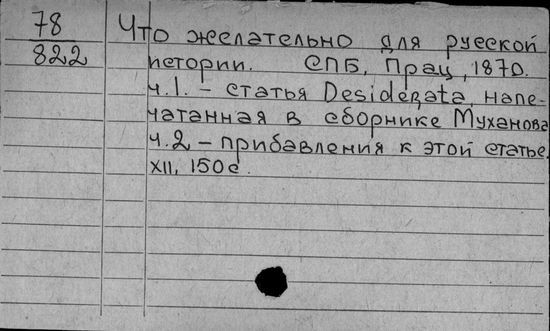 78
822
Что желательно для русской
истории. СПБ, Прац, 1870.
ч.1. – статья Desiderata, напе-
чатанная в сборнике Муханова
ч.2 – прибавления к этой статье.
XII, 150 с.